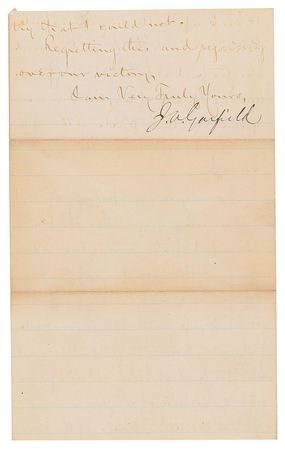 that I could not.
Regretting this and rejoicing
over our victory,
I am Very Truly Yours,
J. A. Garfield